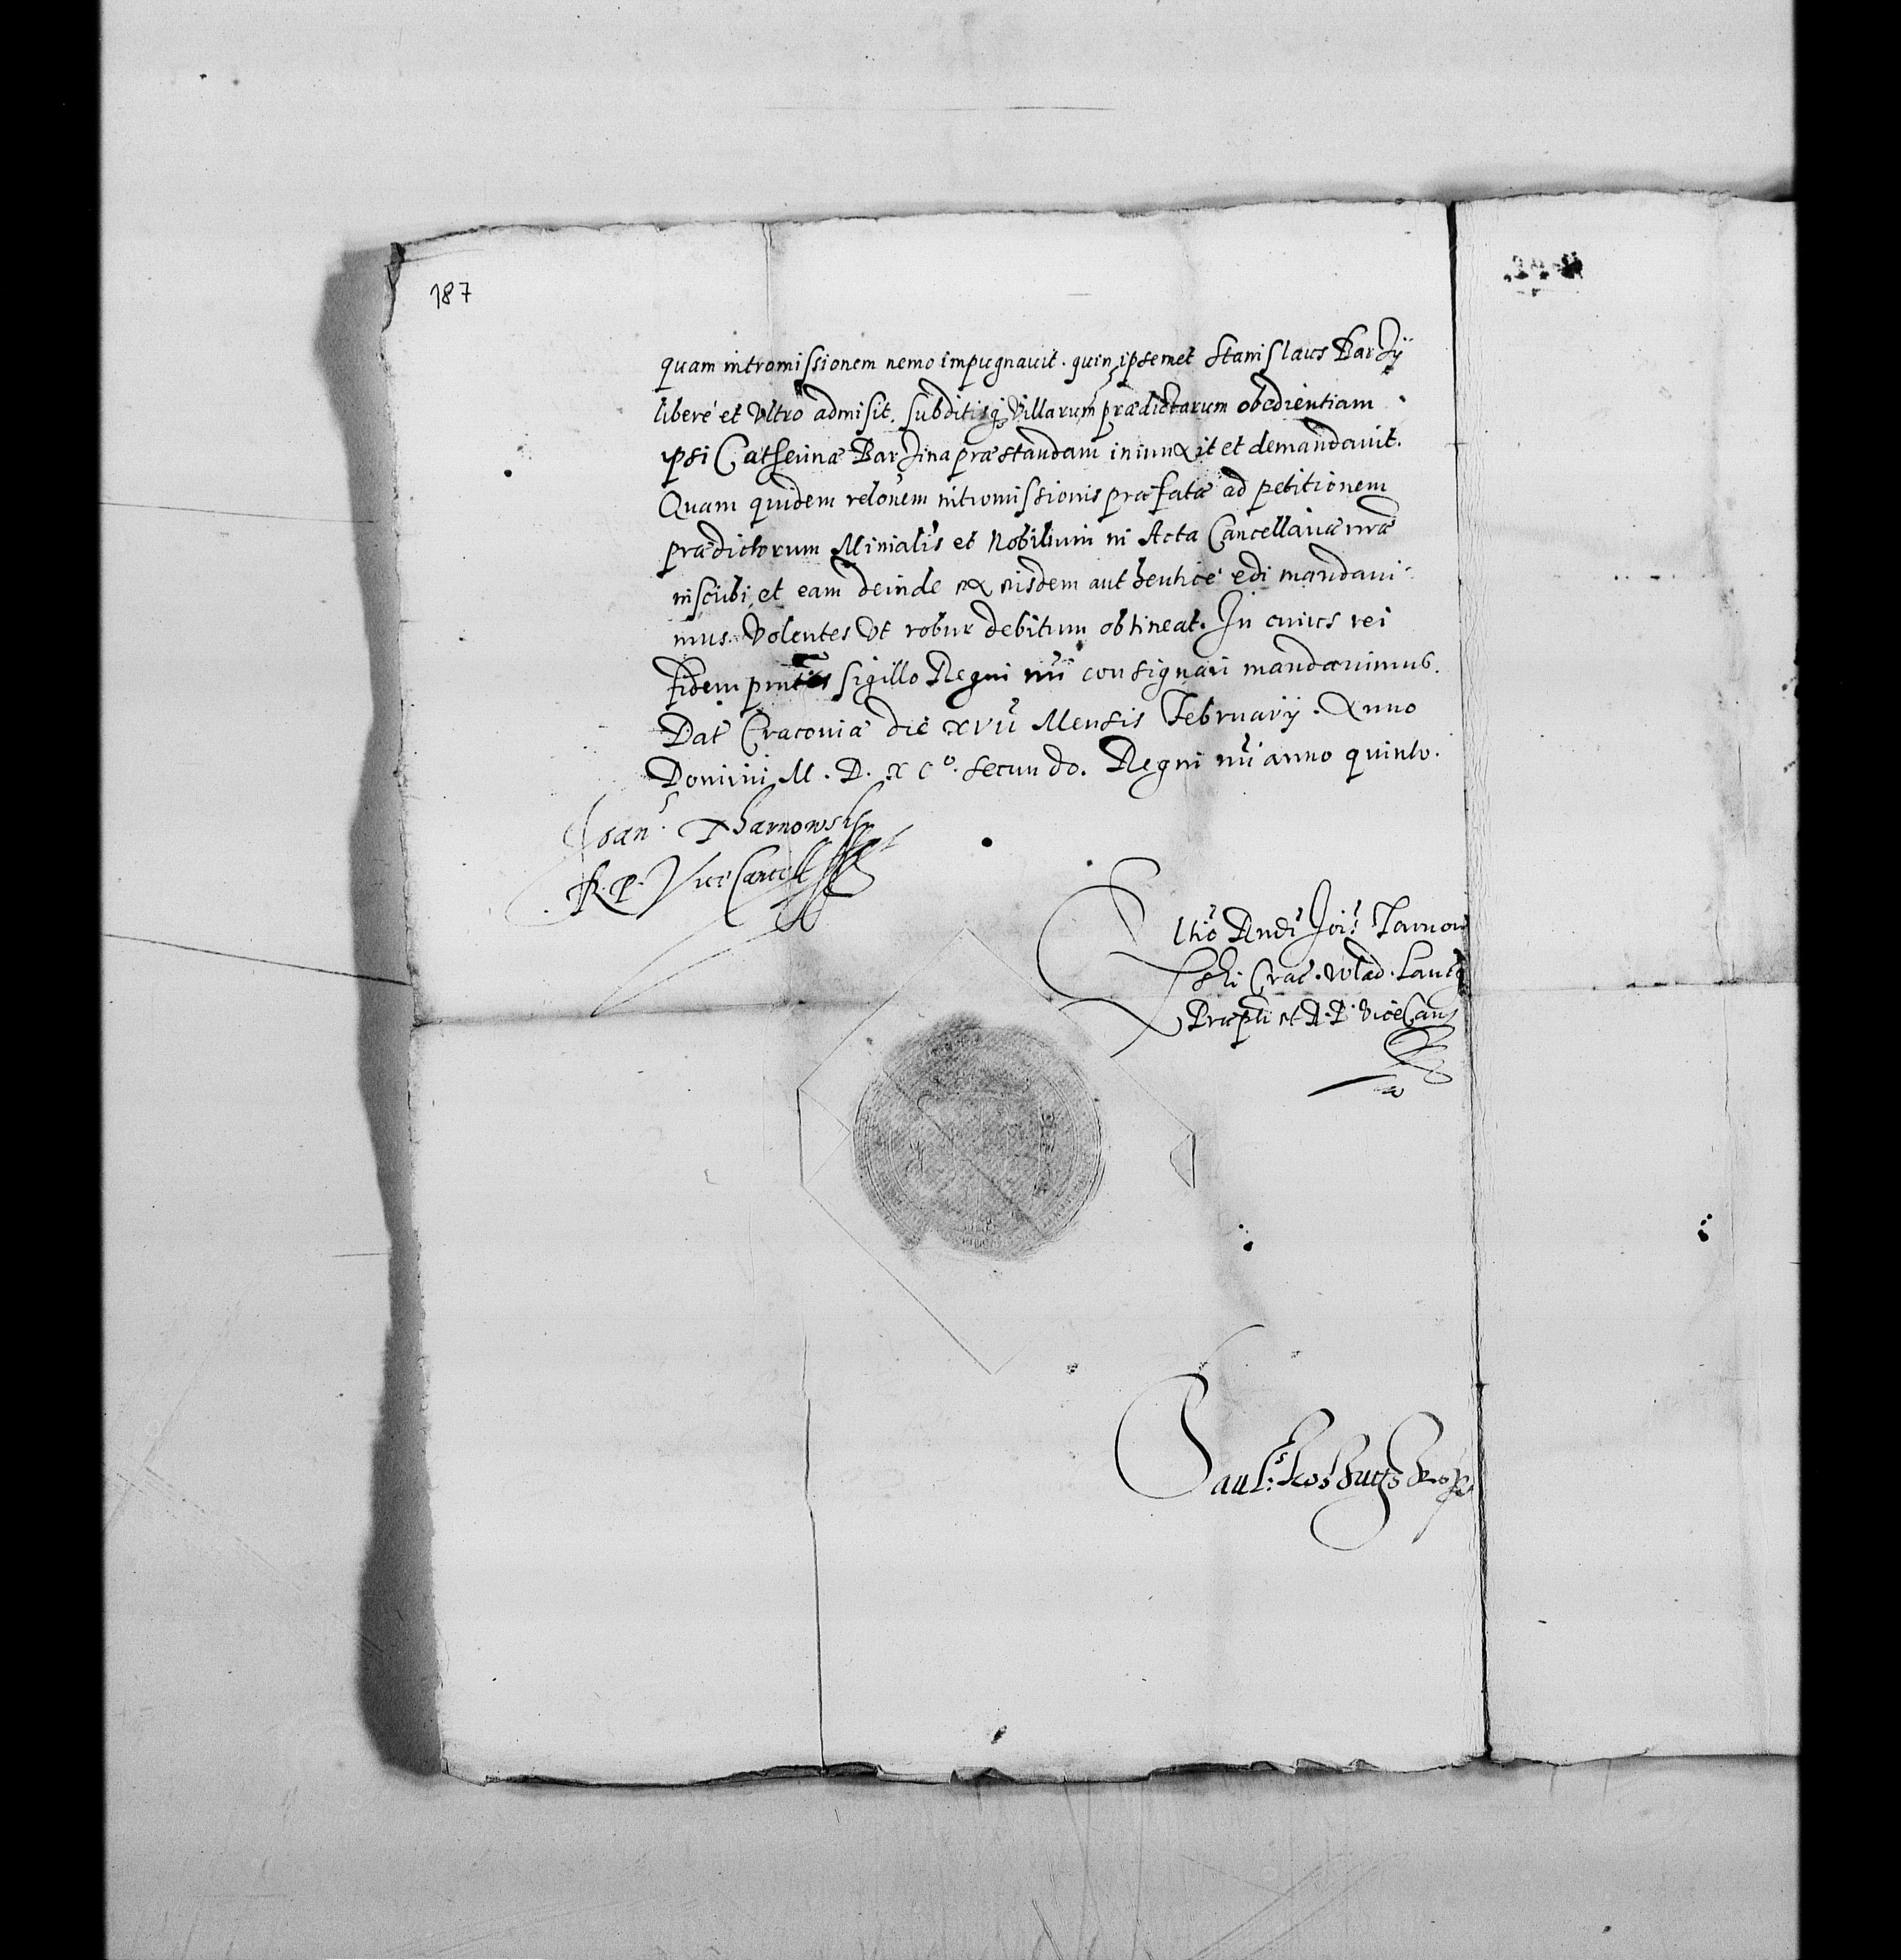 187
quam intromissionem nemo impugnauit. quin ipsemet Stanislaus Barzÿ
liberè et Vltrò admisit. subditisq₃ Villarum prædictarum obedientiam
ipsi Catherinæ Barzina præstandam iniunxit et demandauit.
Quam quidem relonem intromissionis præfatæ ad petitionem
prædictorum Minialis et Nobilium in Acta Cancellariæ nræ
inscribi, et eam deinde ex eisdem authenticè edi mandaui-
mus. Volentes Vt robur debitum obtineat. In cuius rei
fidem pntes sigillo Regni nri consignari mandauimus.
Dat Cracouiæ die XVII Mensis February. Anno
Domini M. D. XC°. secundo. Regni nri anno quinto.
Joan. Tharnowskj
R. P. ViceCancell
Rltio Rndi Jois Tarnow
ski Crac. Wlad. Lancz
Præpti et R. P. ViceCanc
Paul.